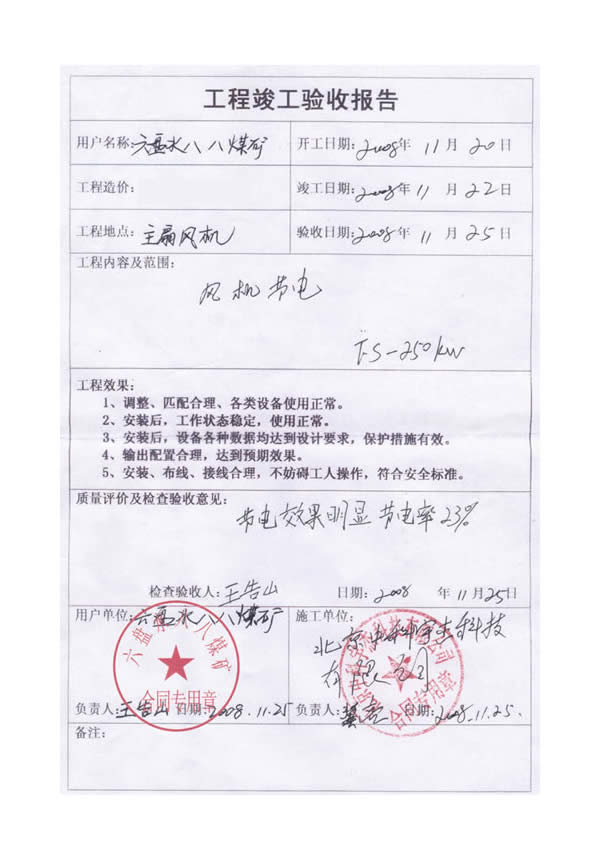 工程竣工验收报告
用户名称:六盘水八八煤矿 开工日期:2008年 11月 20日
工程造价: 竣工日期:2008年 11月 22日
工程地点:主扇风机 验收日期:2008年 11月 25日
工程内容及范围:
风机节电
FS-250kw
工程效果:
1、调整、匹配合理、各类设备使用正常。
2、安装后，工作状态稳定，使用正常。
3、安装后，设备各种数据均达到设计要求，保护措施有效。
4、输出配置合理，达到预期效果。
5、安装、布线、接线合理，不妨碍工人操作，符合安全标准。
质量评价及检查验收意见:
节电效果明显 节电率23%
检查验收人:王告山 日期:2008 年11月25日
用户单位:六盘水八八煤矿 施工单位:
北京 科技
有限公司
六盘水八八煤矿
合同专用章
合同专用章
负责人:王告山 日期:2008.11.25 负责人: 日期:2008.11.25.
备注: